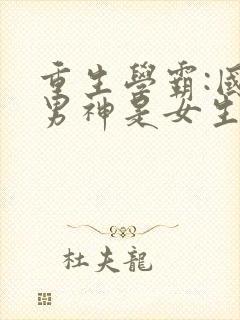 重生學霸:國
男神是女生
杜夫龍